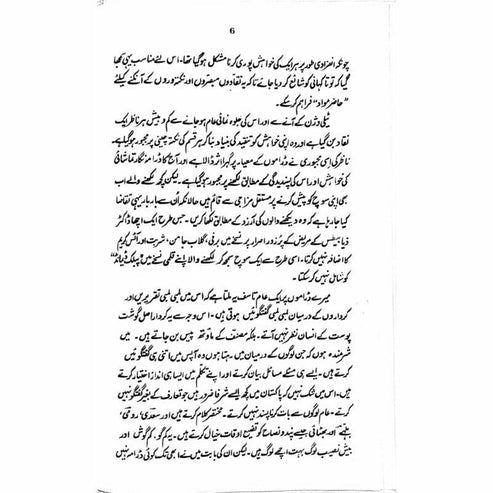 6
چونکہ انفرادی طور پر ہر ایک کی خواہش پوری کرنا مشکل ہو گیا تھا۔ اس لئے مناسب یہی سمجھا
گیا کہ توتا کہانی کو شائع کر دیا جائے تا کہ یہ نقادوں مبصروں اور نکتہ وروں کے آنکنے کیلئے
"حاضر مواد" فراہم کر سکے۔
ٹیلی وژن کے آنے سے اور اس کی جلوہ نمائی عام ہو جانے سے کم و بیش ہر ناظر ایک
نقاد بن گیا ہے اور وہ اپنی خواہش کو تنقید کی بنیاد بنا کر ہر قسم کی نکتہ چینی پر مجبور ہو گیا ہے۔
ناظر کی اسی مجبوری نے ڈراموں کے معیار پر گہرا اثر ڈالا ہے اور آج کا ڈرامہ نگار تماشائی
کی خواہش اور اس کی پسندیدگی کے مطابق لکھنے پر مجبور ہو گیا ہے۔ لیکن کچھ لکھنے والے اب
بھی اپنی سوچ کو پیش کرنے پر مستقل مزاجی سے قائم ہیں حالانکہ اُن سے بار بار یہی تقاضا
کیا جا رہا ہے کہ وہ دیکھنے والوں کی آرزو کے مطابق لکھا کریں۔ جس طرح ایک اچھا ڈاکٹر
ذیابیطس کے مریض کے پرزور اصرار پر نسخے میں برفی، گلاب جامن، شربت اور آئس کریم
کا اضافہ نہیں کرتا۔ اسی طرح سے ایک سوچ سمجھ کر لکھنے والا اپنے قلمی نسخے میں "پبلک ڈیمانڈ"
کو شامل نہیں کر سکتا۔
میرے ڈراموں پر ایک عام تاسف یہ ملتا ہے کہ اس میں لمبی لمبی تقریریں اور
کرداروں کے درمیان لمبی لمبی گفتگوئیں ہوتی ہیں۔ اس وجہ سے یہ کردار اصل گوشت
پوست کے انسان نظر نہیں آتے۔ بلکہ مصنف کے ماؤتھ پیس بن جاتے ہیں۔ میں
شرمندہ ہوں کہ جن لوگوں کے درمیان میں رہتا ہوں وہ آپس میں اتنی ہی گفتگوئیں
کرتے ہیں۔ ایسے ہی مسئلے مسائل بیان کرتے اور اپنے تکلم میں ایسا ہی انداز اختیار کرتے
ہیں۔ اس میں شک نہیں کہ پاکستان میں کچھ ایسے شرفا ضرور ہیں جو تعارف کے بغیر گفتگو نہیں
کرتے۔ عام لوگوں سے بات کرنا پسند نہیں کرتے۔ مختصر کلام کرتے ہیں اور سعدی، رومی،
بلھے اور بھٹائی جیسے پند و نصائح کو تضیع اوقات خیال کرتے ہیں۔ یہ کم گو۔ کم گوش اور
بیش نصیب لوگ بہت اچھے لوگ ہیں۔ لیکن ان کی بابت میں نے ابھی تک کوئی ڈرامہ نہیں